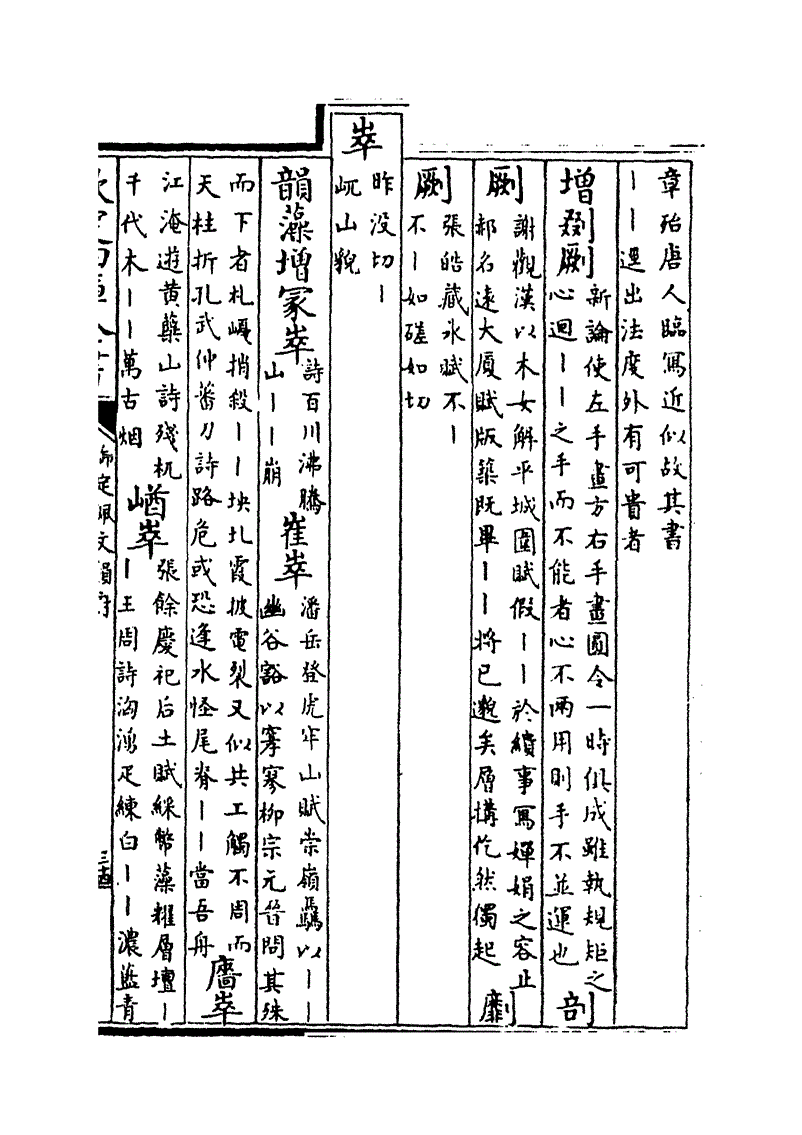 章殆唐人臨寫近似故其書
丨丨逕出法度外有可貴者
增剟劂
新論使左手畫方右手畫圓令一時俱成雖執規矩之
心迴丨丨之手而不能者心不兩用則手不並運也
剞劂
謝觀漢以木女解平城圍賦假丨丨於繢事寫嬋娟之容止
郝名遠大厦賦版築既畢丨丨將已邈矣層構仡然僑起
劘劂
張皓藏氷賦不丨
不丨如磋如切
崒
昨没切丨
屼山貌
韻藻增冢崒
詩百川沸騰
山丨丨崩
崔崒
潘岳登虎牢山賦崇嶺驫以丨丨
幽谷豁以寥寥柳宗元晉問其殊
而下者札嶱捎殺丨丨坱圠霞披電裂又似共工觸不周而
天柱折孔武仲蕃刀詩路危或恐逢水怪尾脊丨丨當吾舟
㕒崒
江淹遊黄蘗山詩殘杌丨
千代木丨丨萬古烟
崷崒
張餘慶祀后土賦綵幣藻耀層壇丨
丨王周詩洶湧疋練白丨丨濃藍青
御定佩文韻府